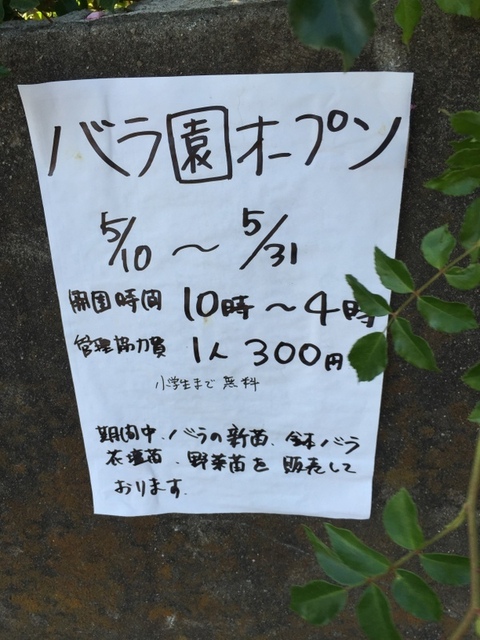 バラ園オープン
5/10 ～ 5/31
開園時間 10時～4時
管理協力費 1人 300円
小学生まで 無料
期間中、バラの新苗、鉢バラ
花壇苗、野菜苗を 販売して
おります.